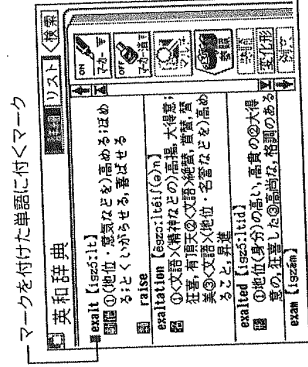 マークを付けた単語に付くマーク
英和辞典
リスト
検索
exalt [igzɔ́ːlt]
①(地位・意気などを)高める;ほめ
る;とくいがらせる,喜ばせる
raise
exaltation [ègzɔːltéiʃ(ə)n]
①<文語>(精神などの)高揚,大得意;
狂喜,有頂天②<文語>絶賛,賞賛,賛
美③<文語>(地位・名誉などを)高め
ること,昇進
exalted [igzɔ́ːltid]
①地位(身分)の高い,高貴の②大得
意の,狂喜した③高尚な,格調のある
exam [igzǽm]
ON
マーカー
OFF
マーカー消す
変化形